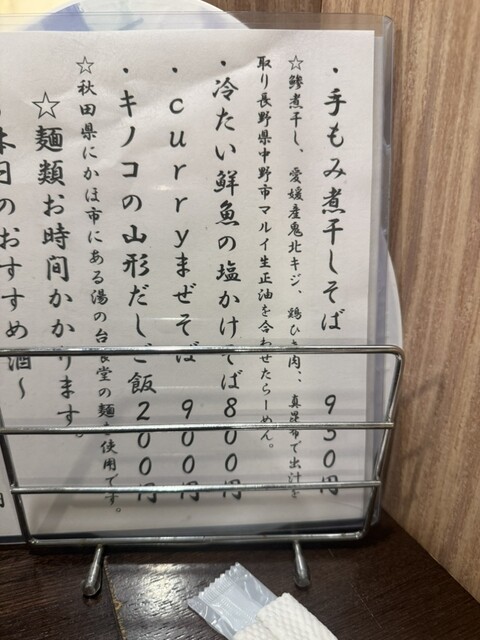 ・手もみ煮干しそば 950円
☆鯵煮干し、愛媛産鬼北キジ、鶏ひき肉、真昆布で出汁を
取り長野県中野市マルイ生正油を合わせたらーめん。
・冷たい鮮魚の塩かけそば 800円
・curryまぜそば 900円
・キノコの山形だしご飯 200円
☆秋田県にかほ市にある湯の台食堂の麺を使用です。
☆麺類お時間かかります。
本日のおすすめ酒〜
円